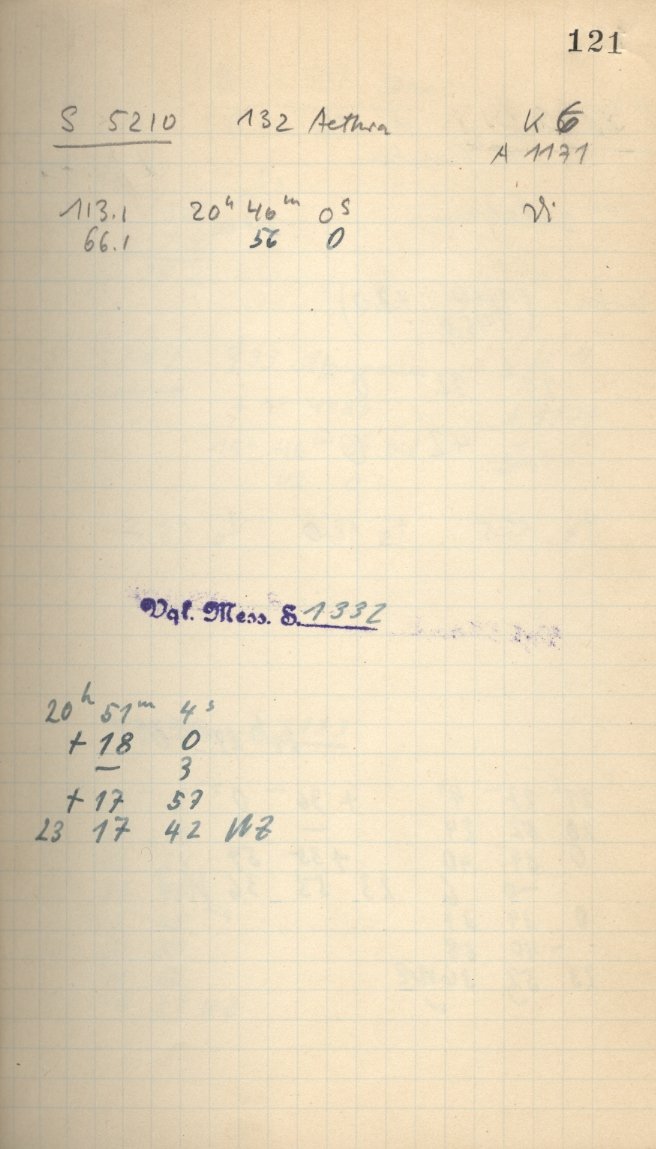 121
S 5210 132 Aethra K 6
A 1171
113.1 20h 46m 0s Vi
66.1 56 0
Vgl. Mess. S. 1332
20h 51m 4s
+ 18 0
– 3
+ 17 57
23 17 42 WZ